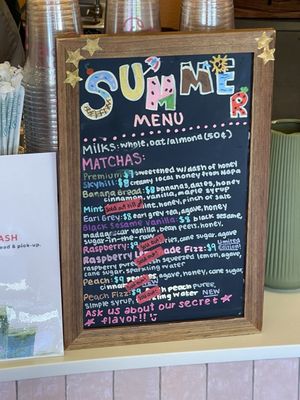 SUMMER
MENU
Milks: whole, oat/almond (50¢)
MATCHAS:
Premium: $7 sweetened w/ dash of honey
Skyhill: $8 creamy local honey from Napa
Banana Bread: $8 bananas, dates, honey
cinnamon, vanilla, maple syrup
Mint honey, pinch of salt
Earl Grey: $8 earl grey tea, agave, honey
Black Sesame Vanilla: $8 black sesame,
madagascar vanilla, bean, honey,
sugar-in-the-raw
Raspberry: $9 cane sugar, agave
Raspberry Fizz: $9 Limited
raspberry squeezed lemon, agave,
cane sugar, sparkling water
Peach: $9 agave, honey, cane sugar,
cinnamon NEW
Peach Fizz: $9 Peach puree,
simple syrup, water NEW
Ask us about our secret
flavor!!
ASH
& pick-up.